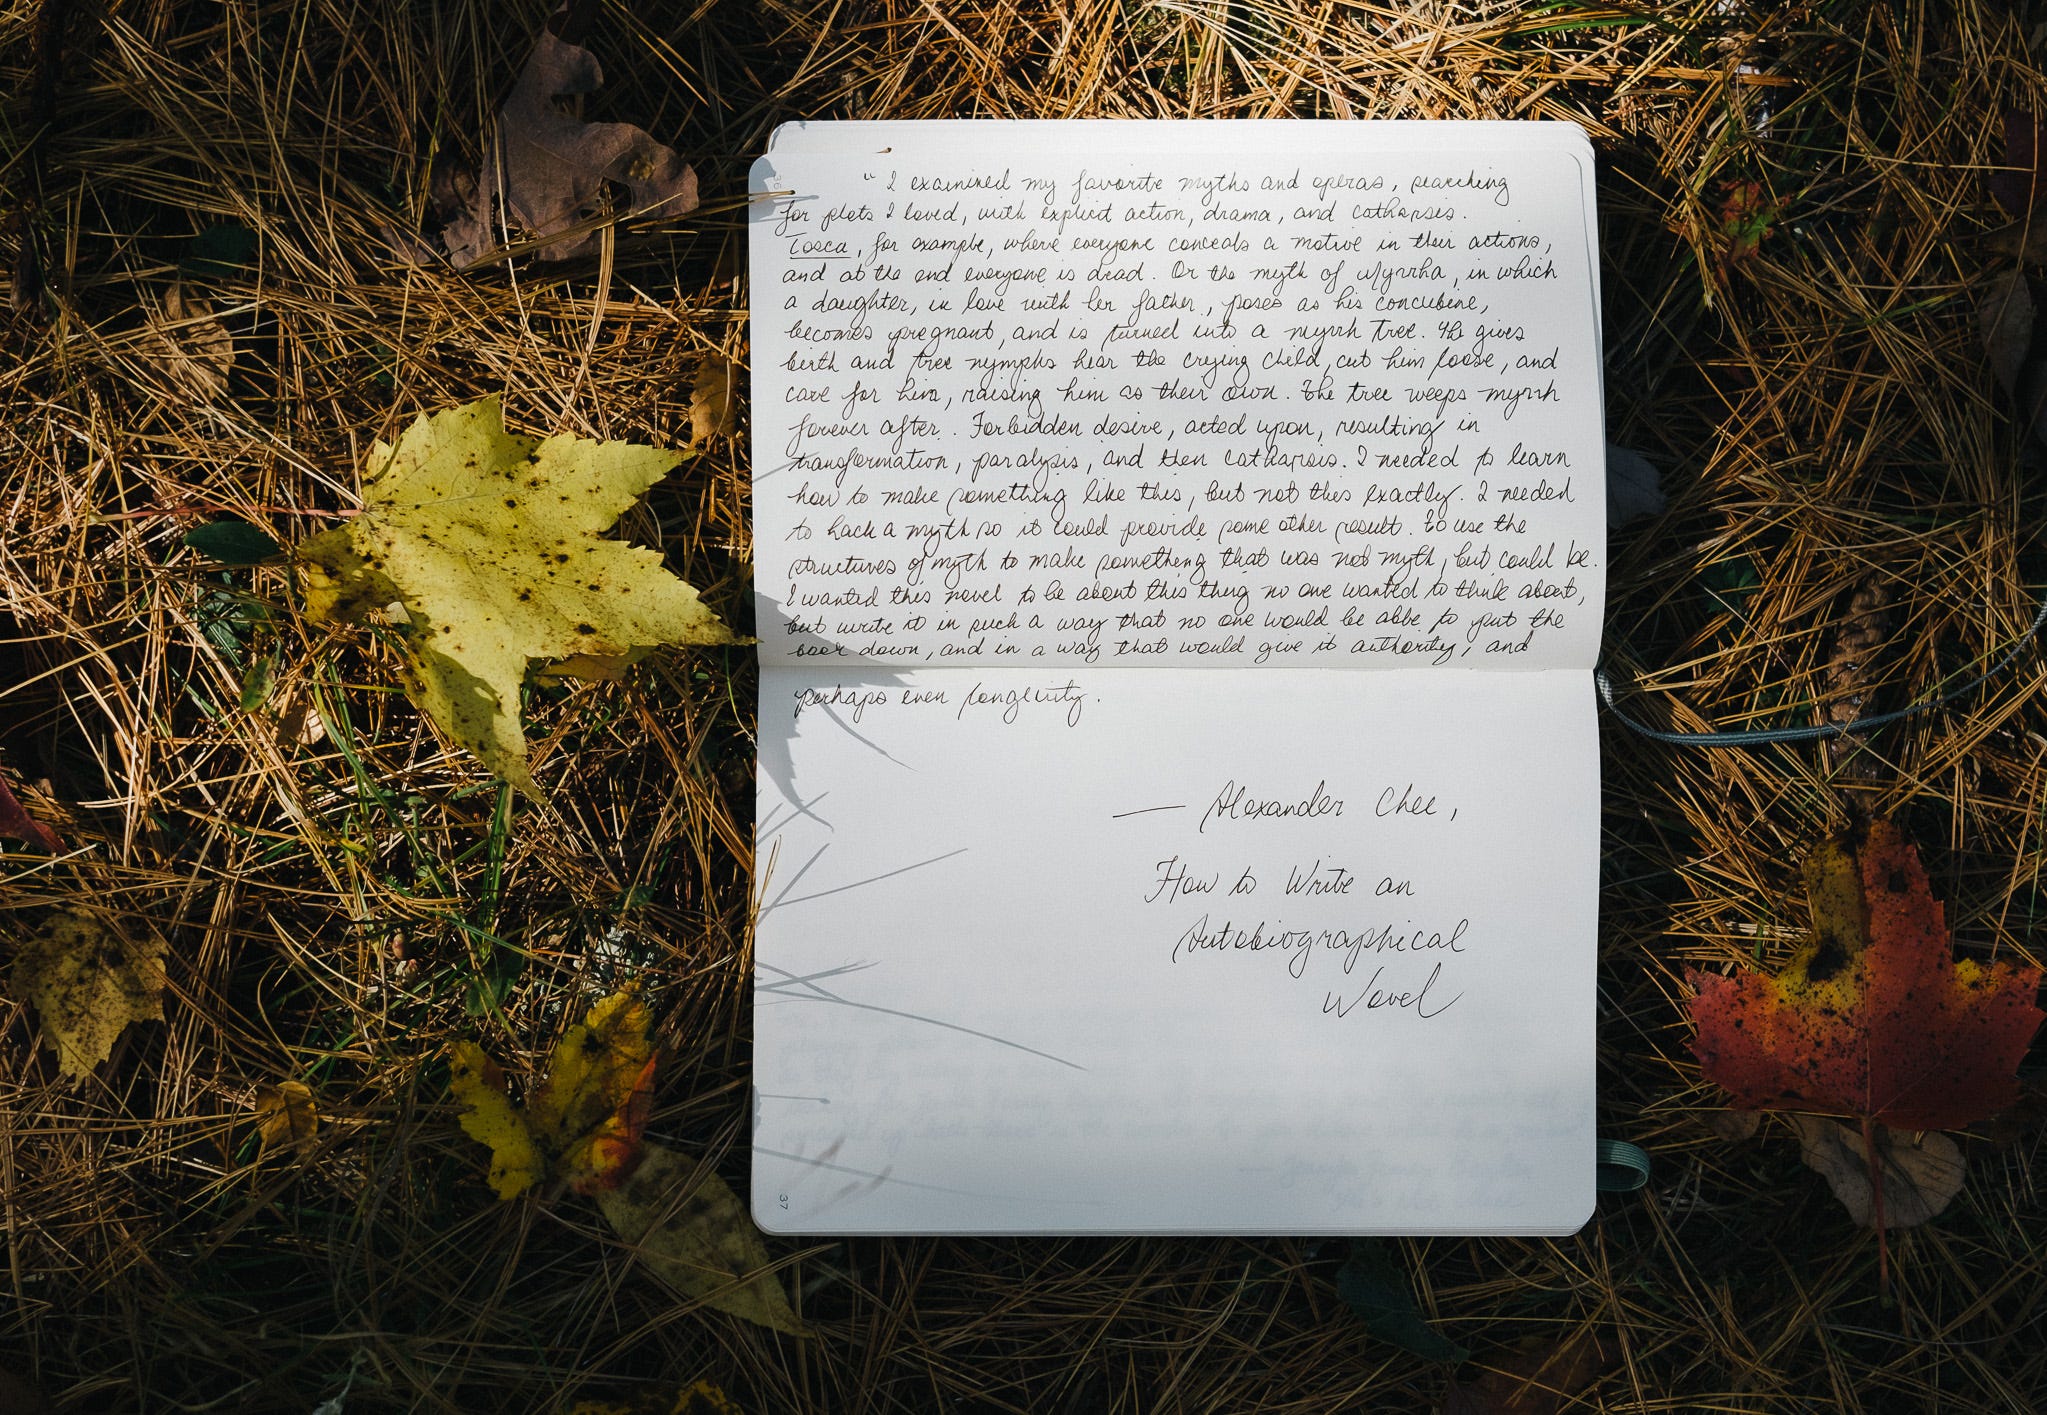 36
" I examined my favorite myths and operas, searching
for plots I loved, with explicit action, drama, and catharsis.
Tosca, for example, where everyone conceals a motive in their actions,
and at the end everyone is dead. Or the myth of Myrrha, in which
a daughter, in love with her father, poses as his concubine,
becomes pregnant, and is turned into a myrrh tree. She gives
birth and tree nymphs hear the crying child, cut him loose, and
care for him, raising him as their own. The tree weeps myrrh
forever after. Forbidden desire, acted upon, resulting in
transformation, paralysis, and then catharsis. I needed to learn
how to make something like this, but not this exactly. I needed
to hack a myth so it could provide some other result. To use the
structures of myth to make something that was not myth, but could be.
I wanted this novel to be about this thing no one wanted to think about,
but write it in such a way that no one would be able to put the
book down, and in a way that would give it authority, and
perhaps even longevity.
— Alexander Chee,
How to Write an
Autobiographical
Novel
37